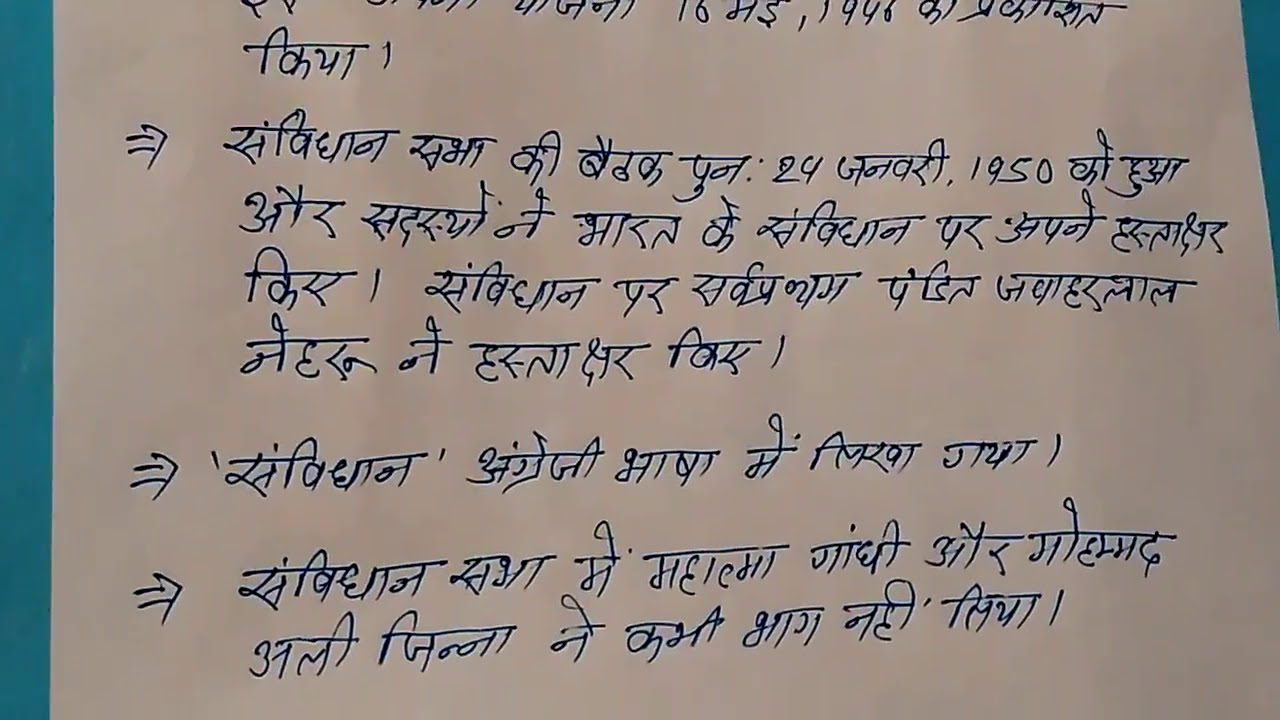 योजना 16 मई, 1946 को प्रकाशित
किया।
⇒ संविधान सभा की बैठक पुन: 24 जनवरी, 1950 को हुआ
और सदस्यों ने भारत के संविधान पर अपने हस्ताक्षर
किए। संविधान पर सर्वप्रथम पंडित जवाहरलाल
नेहरू ने हस्ताक्षर किए।
⇒ 'संविधान' अंग्रेजी भाषा में लिखा गया।
⇒ संविधान सभा में महात्मा गांधी और मोहम्मद
अली जिन्ना ने कभी भाग नहीं लिया।